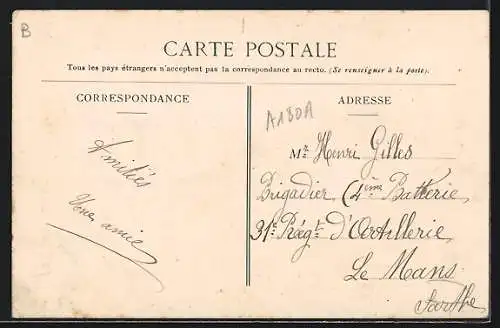 B
CARTE POSTALE
Tous les pays étrangers n'acceptent pas la correspondance au recto. (Se renseigner à la poste).
CORRESPONDANCE
Amitiés
Votre amie
ADRESSE
A180A
Mr. Henri Gilles
Brigadier (4ème Batterie
31e Régt d'Artillerie
Le Mans
Sarthe